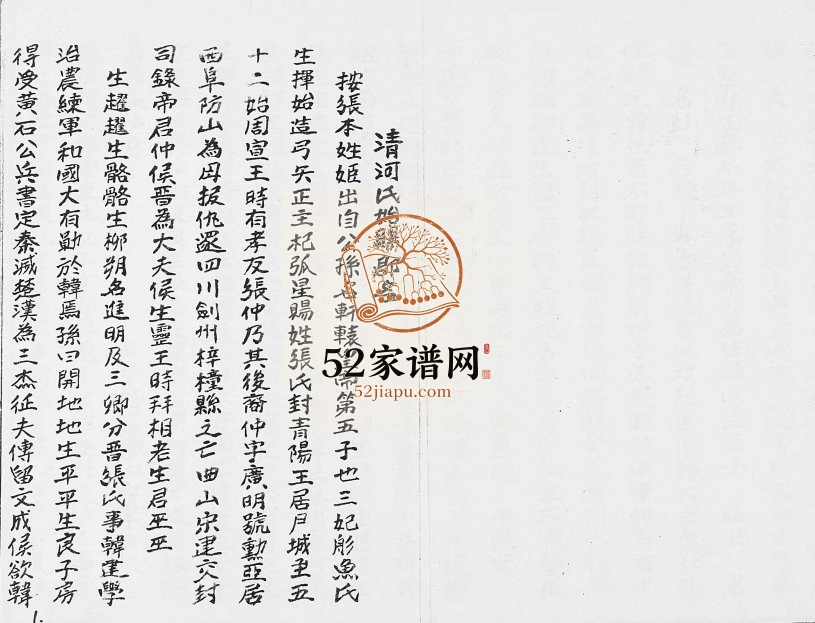 清河氏始
按張本姓姬出自公孫軒轅第五子也三妃彤魚氏
生揮始造弓矢正主祀弧星賜姓張氏封青陽王居尹城里五
十二始周宣王時有孝友張仲乃其後裔仲字廣明號勳亞居
西阜防山為母报仇還四川劍州梓橦縣之亡曲山宋建交封
司錄帝君仲侯晋為大夫侯生靈王時拜相老生君巫巫
生趯趯生骼骼生柳朔名進明及三卿分晋張氏事韓建學
治農練軍和國大有勛於韓焉孫曰開地地生平平生良子房
得受黃石公兵書定秦滅楚漢為三杰征夫傳留文成侯欲韓
1.
52家谱网
52jiapu.com